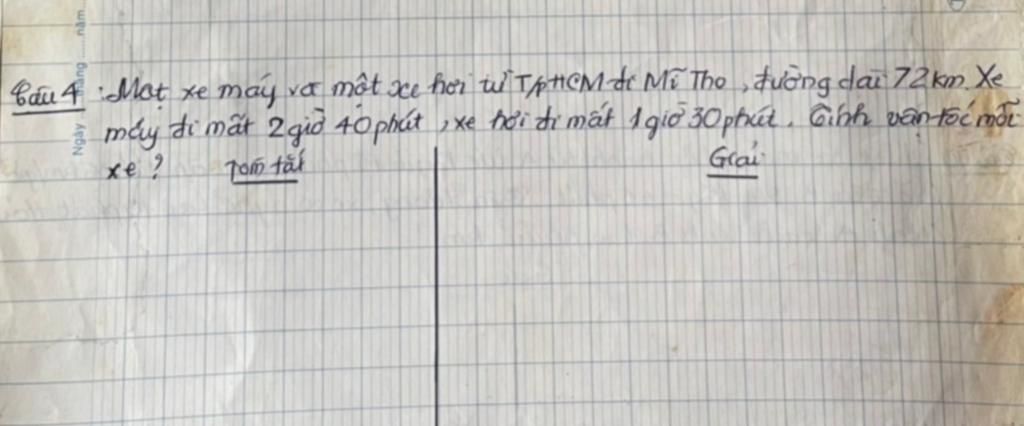 Câu 4 : Một xe máy và một xe hơi từ TPHCM đi Mĩ Tho, đường dài 72km. Xe
máy đi mất 2 giờ 40 phút, xe hơi đi mất 1 giờ 30 phút. Tính vận tốc mỗi
xe ? Tóm tắt Giải
Ngày tháng.....năm